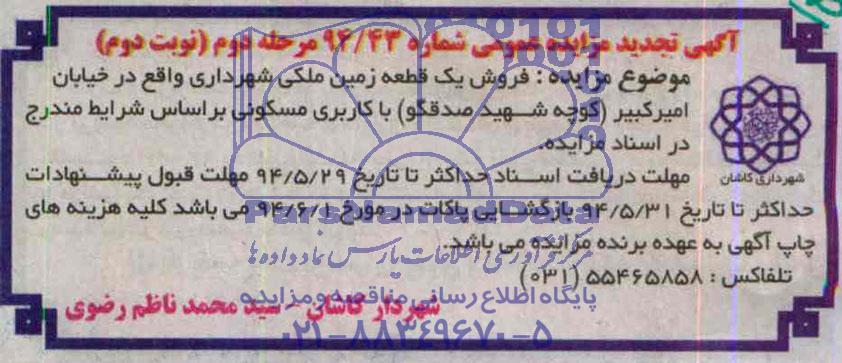 آگهی تجدید مزایده عمومی شماره ۹۴/۴۳ مرحله دوم (نوبت دوم)
موضوع مزایده : فروش یک قطعه زمین ملکی شهرداری واقع در خیابان
امیرکبیر (کوچه شهید صدقگو) با کاربری مسکونی براساس شرایط مندرج
در اسناد مزایده.
شهرداری کاشان
مهلت دریافت اسناد حداکثر تا تاریخ ۹۴/۵/۲۹ مهلت قبول پیشنهادات
حداکثر تا تاریخ ۹۴/۵/۳۱ بازگشایی پاکات در مورخ ۹۴/۶/۱ می باشد کلیه هزینه های
چاپ آگهی به عهده برنده مزایده می باشد.
تلفاکس : ۵۵۴۶۵۸۵۸ (۰۳۱)
شهردار کاشان - سید محمد ناظم رضوی
ParsNamadData
مرکز فرآوری اطلاعات پارس نماد داده ها
پایگاه اطلاع رسانی مناقصه و مزایده
۰۲۱-۸۸۳۴۹۶۷۰-۵